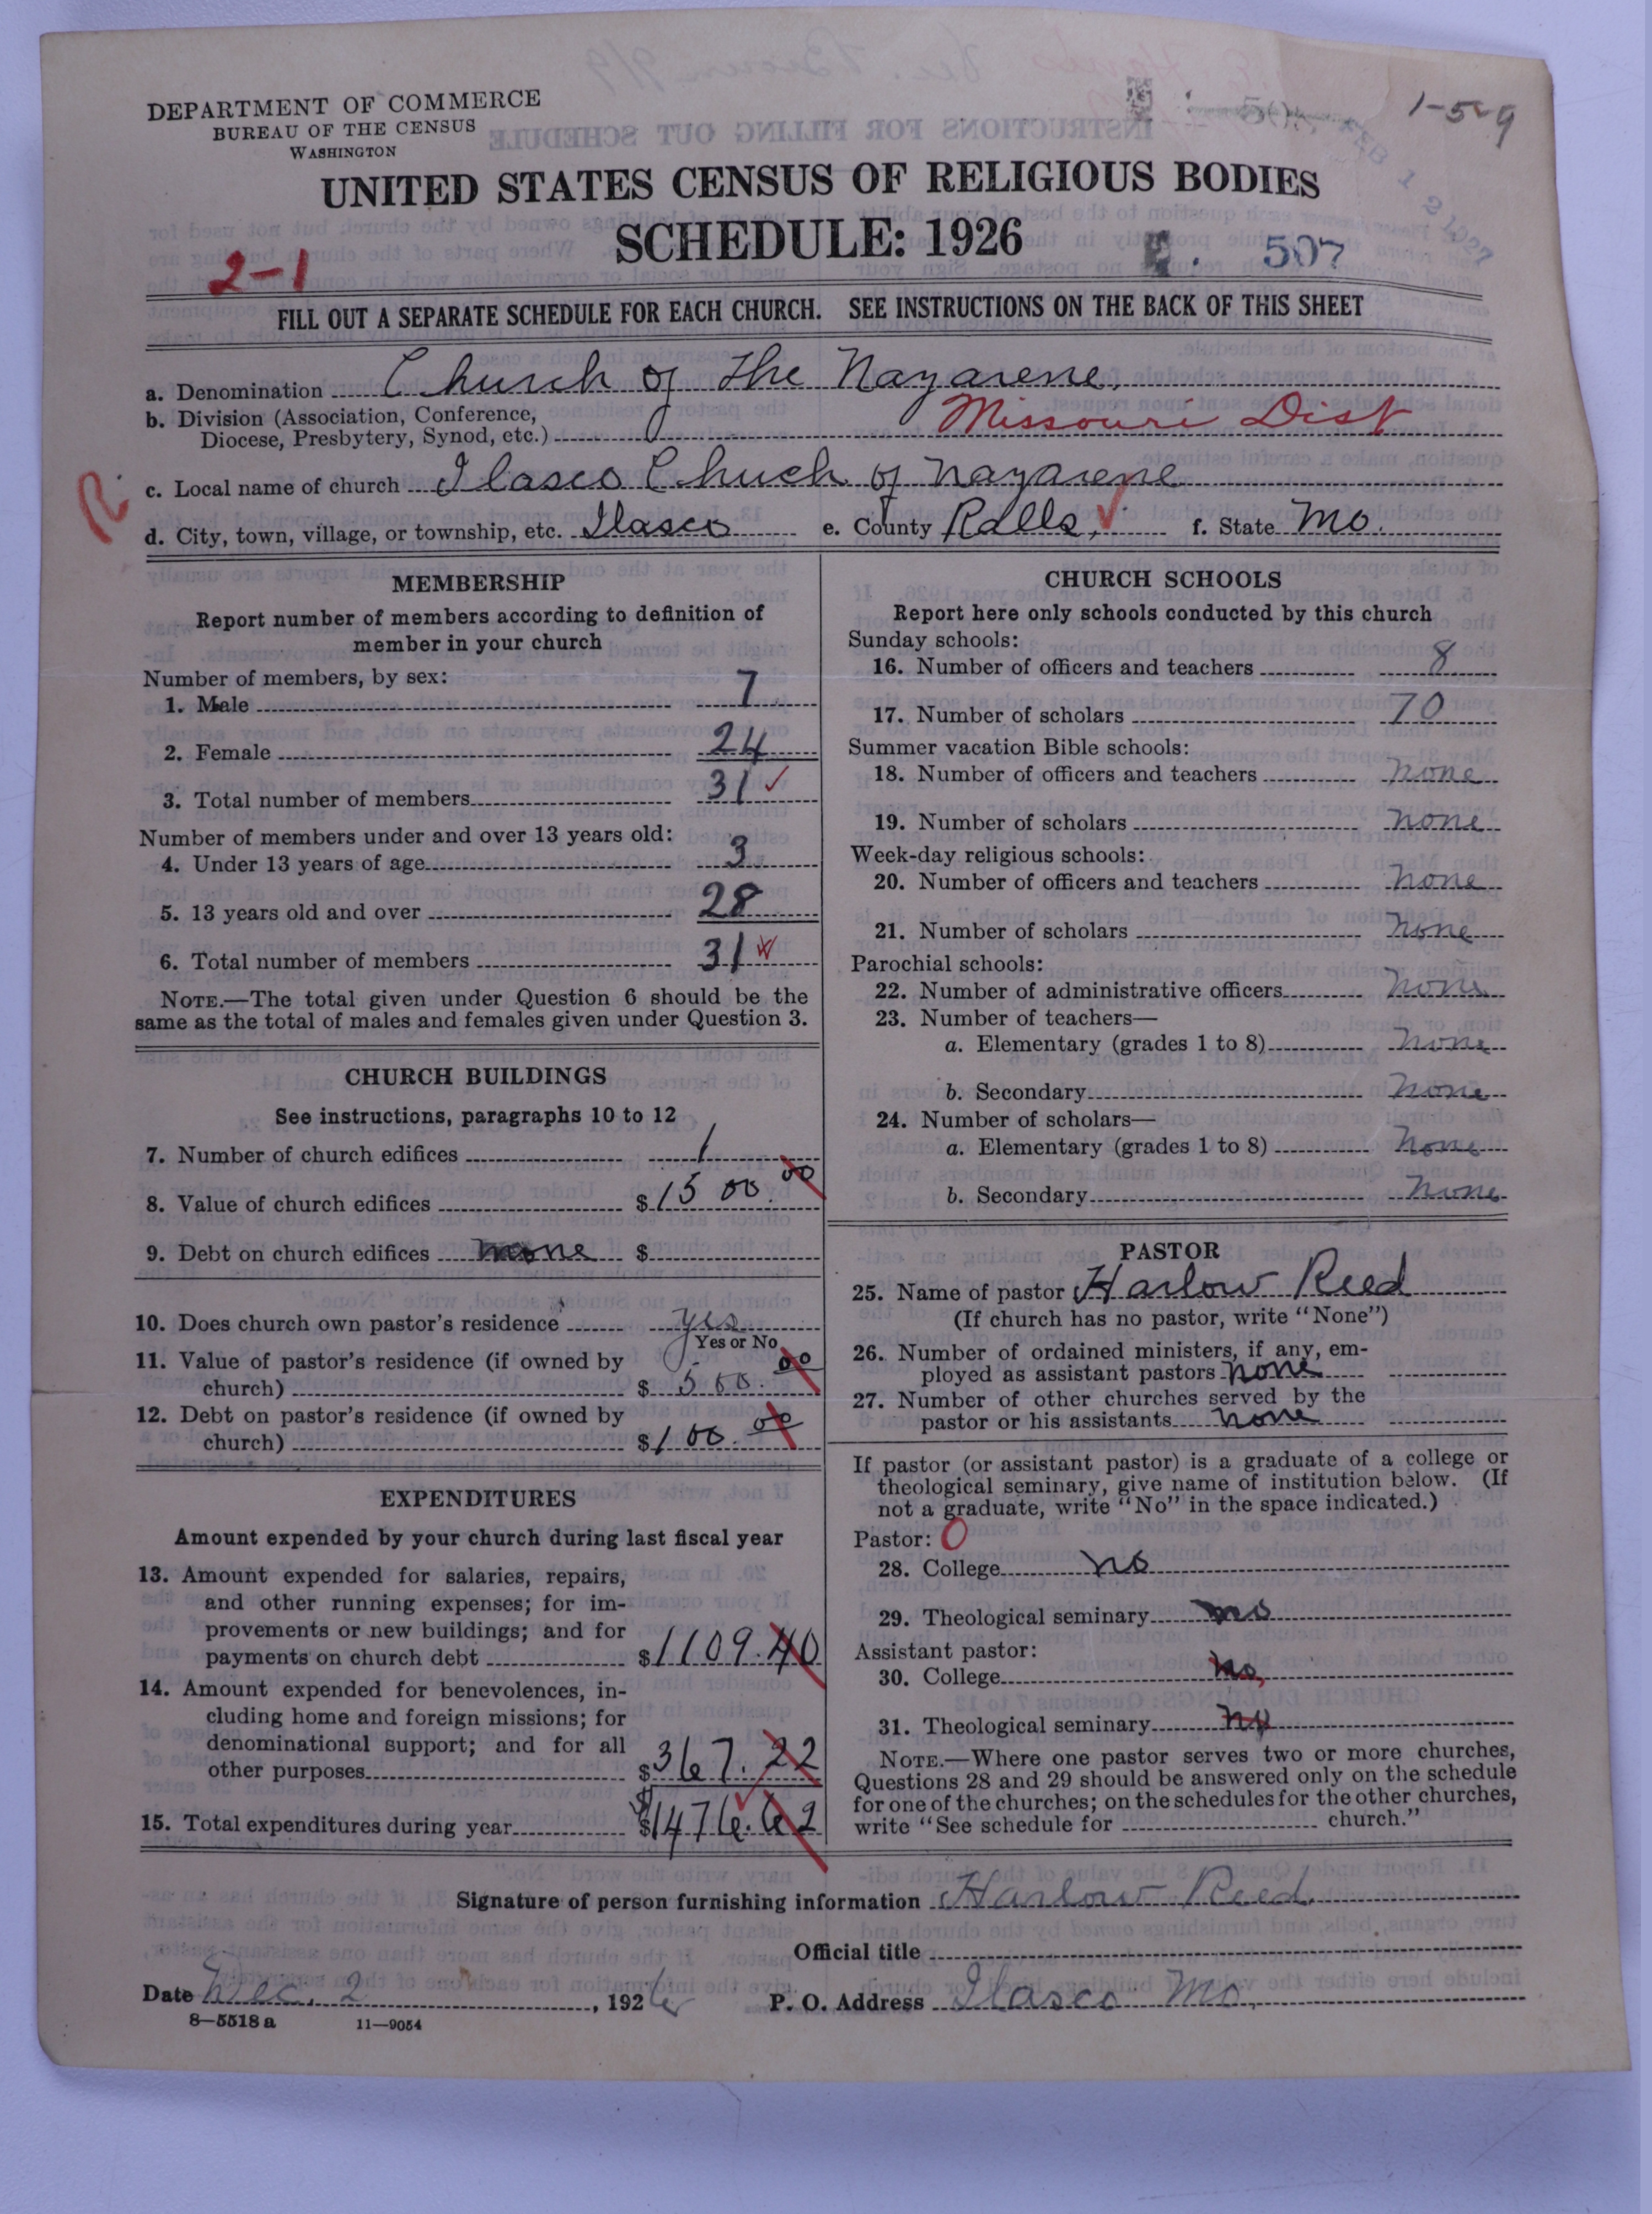 DEPARTMENT OF COMMERCE
BUREAU OF THE CENSUS
WASHINGTON
1-5-9
FEB 12 1927
UNITED STATES CENSUS OF RELIGIOUS BODIES
SCHEDULE: 1926
2-1
507
FILL OUT A SEPARATE SCHEDULE FOR EACH CHURCH. SEE INSTRUCTIONS ON THE BACK OF THIS SHEET
a. Denomination Church of the Nazarene.
b. Division (Association, Conference,
Diocese, Presbytery, Synod, etc.) Missouri Dist
R.
c. Local name of church Ilasco Chuch of Nazarene
d. City, town, village, or township, etc. Ilasco e. County Ralls. f. State Mo.
MEMBERSHIP
Report number of members according to definition of
member in your church
Number of members, by sex:
1. Male 7
2. Female 24
3. Total number of members 31
Number of members under and over 13 years old:
4. Under 13 years of age 3
5. 13 years old and over 28
6. Total number of members 31
NOTE.—The total given under Question 6 should be the
same as the total of males and females given under Question 3.
CHURCH BUILDINGS
See instructions, paragraphs 10 to 12
7. Number of church edifices 1
8. Value of church edifices $1500.00
9. Debt on church edifices none $
10. Does church own pastor's residence yes
Yes or No
11. Value of pastor's residence (if owned by
church) $ 500.00
12. Debt on pastor's residence (if owned by
church) $100.00
EXPENDITURES
Amount expended by your church during last fiscal year
13. Amount expended for salaries, repairs,
and other running expenses; for im-
provements or new buildings; and for
payments on church debt $1109.40
14. Amount expended for benevolences, in-
cluding home and foreign missions; for
denominational support; and for all
other purposes $367.22
15. Total expenditures during year $1476.62
CHURCH SCHOOLS
Report here only schools conducted by this church
Sunday schools:
16. Number of officers and teachers 8
17. Number of scholars 70
Summer vacation Bible schools:
18. Number of officers and teachers none
19. Number of scholars none
Week-day religious schools:
20. Number of officers and teachers none
21. Number of scholars none
Parochial schools:
22. Number of administrative officers none
23. Number of teachers—
a. Elementary (grades 1 to 8) none
b. Secondary none
24. Number of scholars—
a. Elementary (grades 1 to 8) none
b. Secondary none
PASTOR
25. Name of pastor Harlow Reed
(If church has no pastor, write "None")
26. Number of ordained ministers, if any, em-
ployed as assistant pastors none
27. Number of other churches served by the
pastor or his assistants none
If pastor (or assistant pastor) is a graduate of a college or
theological seminary, give name of institution below. (If
not a graduate, write "No" in the space indicated.)
Pastor: 0
28. College no
29. Theological seminary no
Assistant pastor:
30. College no
31. Theological seminary no
NOTE.—Where one pastor serves two or more churches,
Questions 28 and 29 should be answered only on the schedule
for one of the churches; on the schedules for the other churches,
write "See schedule for church."
Signature of person furnishing information Harlow Reed.
Official title
Date Dec. 2, 1926 P. O. Address Ilasco Mo.
8—5518 a 11—9054